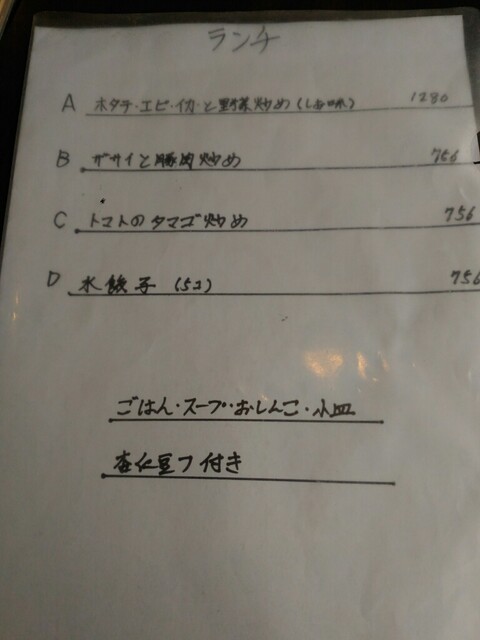 ランチ
A ホタテ・エビ・イカ・と野菜炒め(しお味) 1280
B ザーサイと豚肉炒め 756
C トマトのタマゴ炒め 756
D 水餃子 (5コ) 756
ごはん・スープ・おしんこ・小皿
杏仁豆フ付き